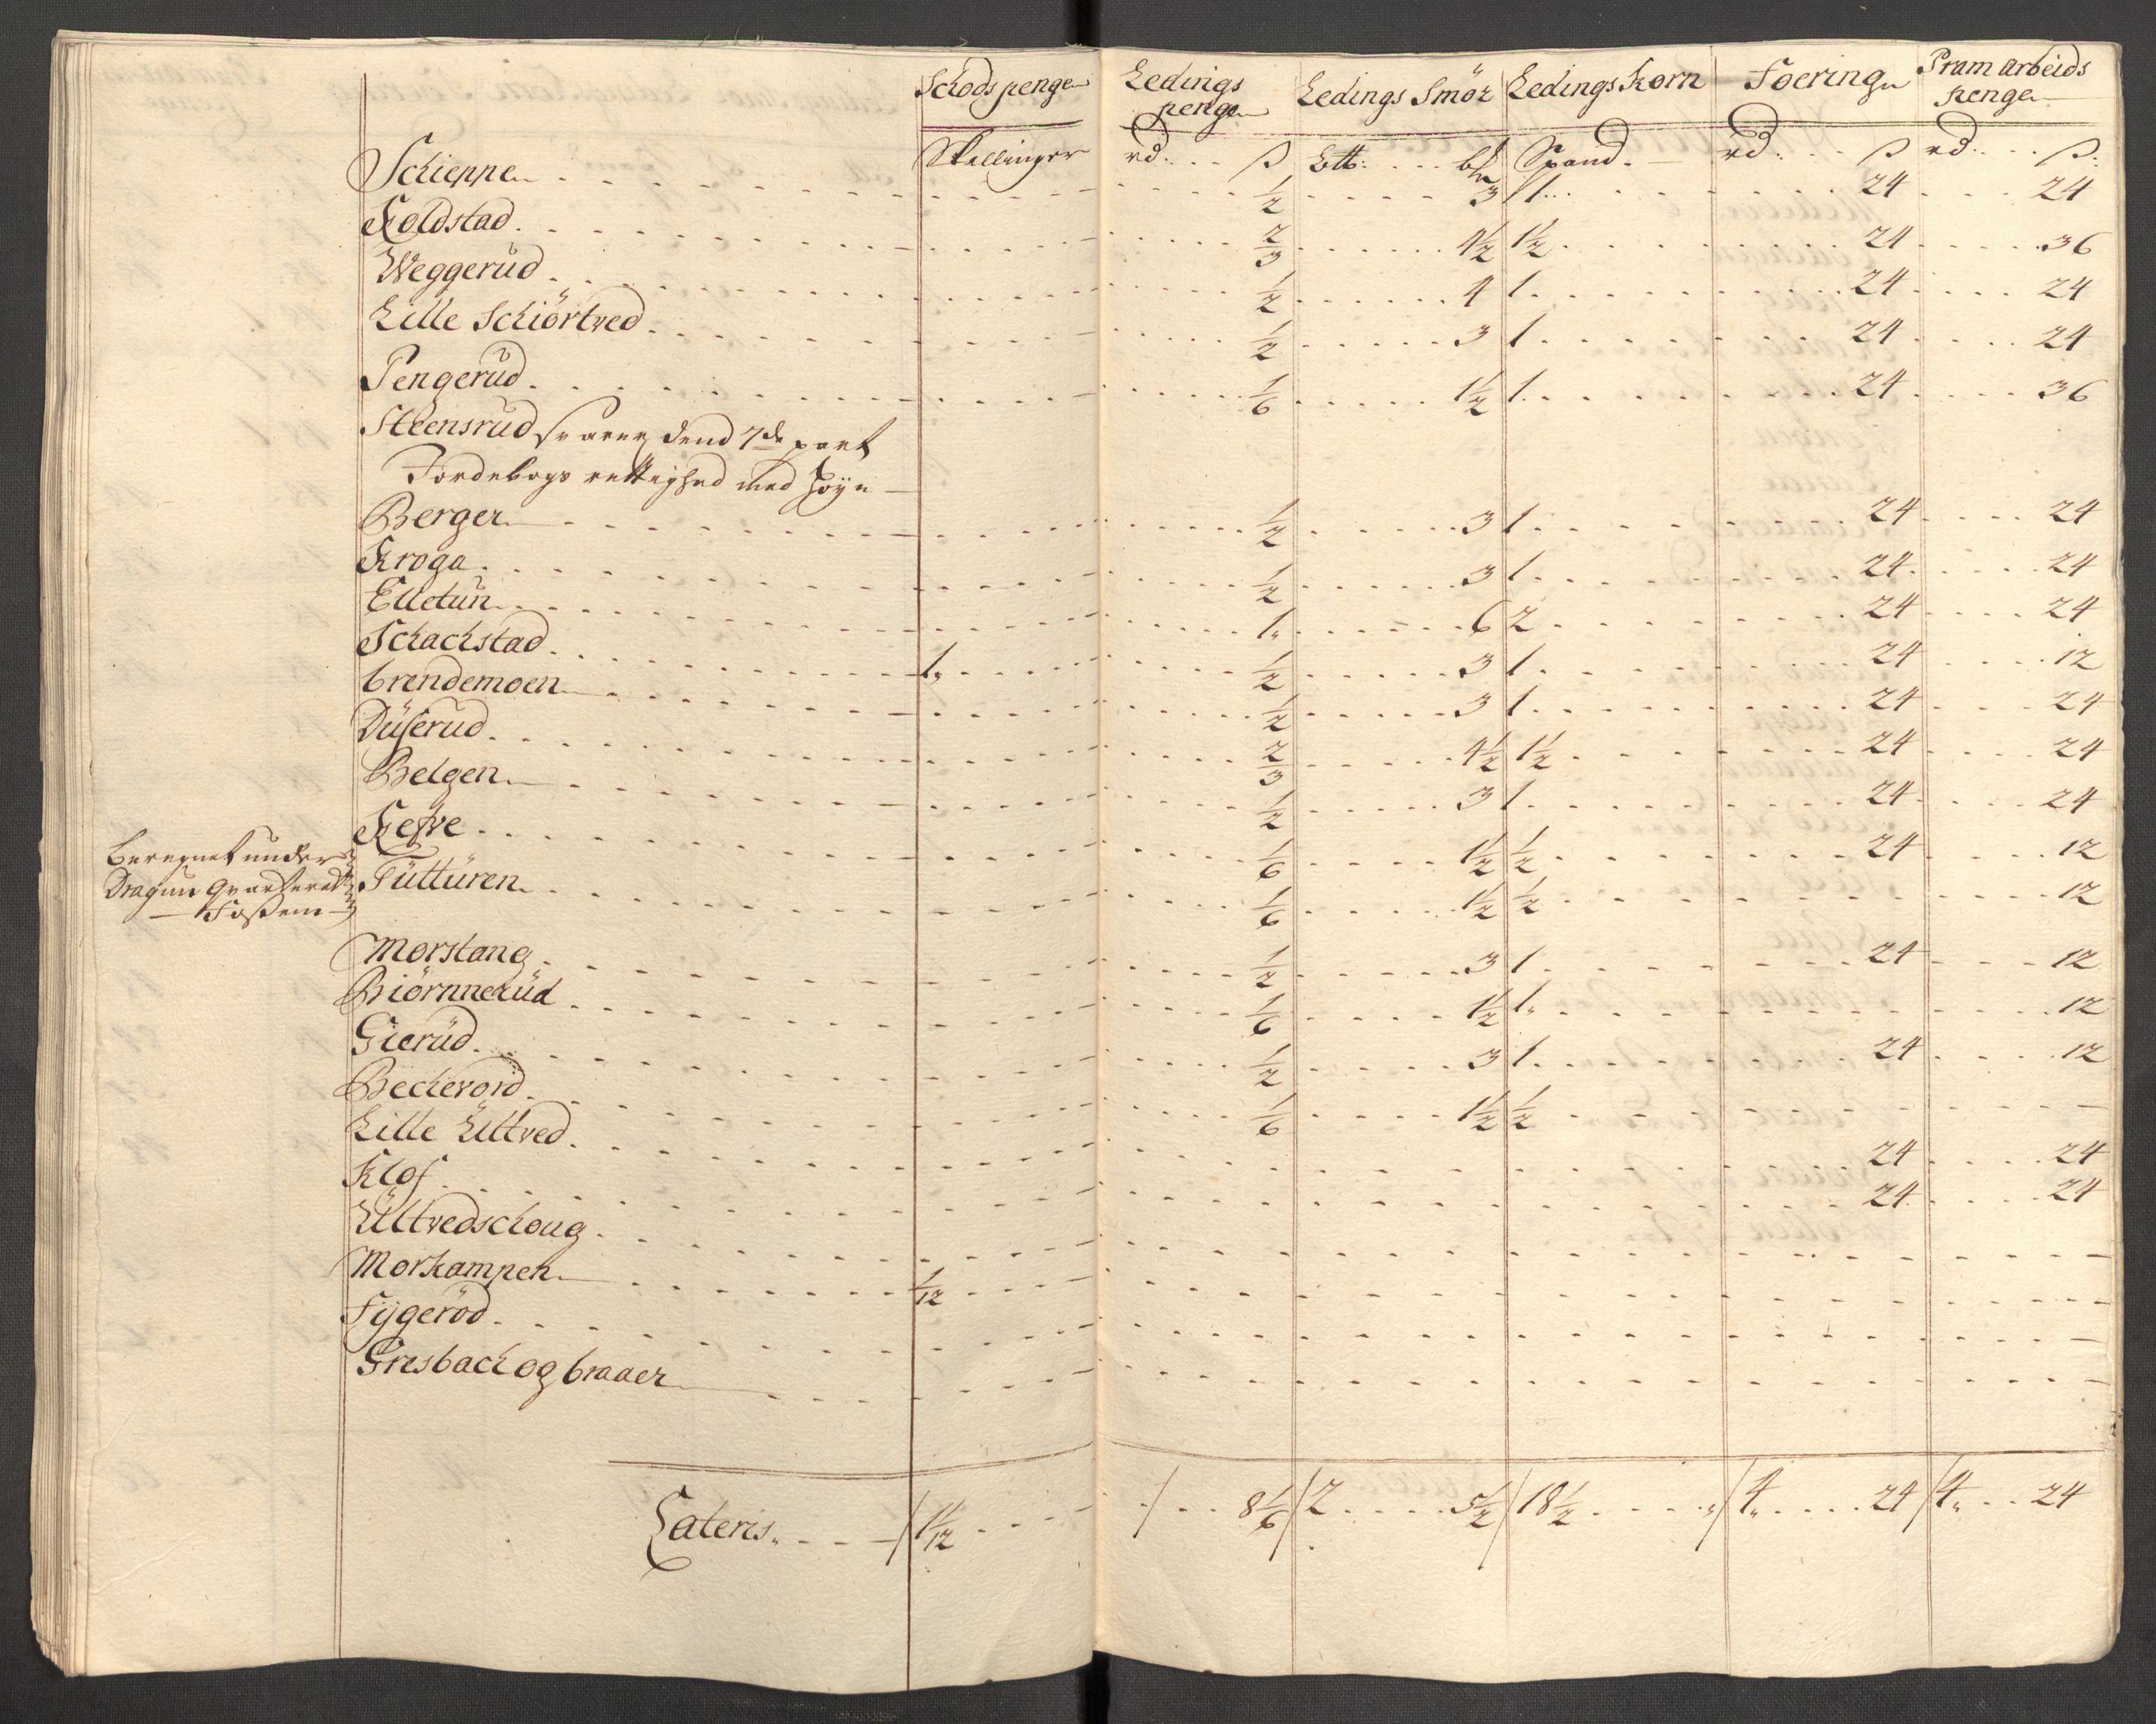 Schods penge Ledings penge Ledings Smör Ledings Korn Foering Pram arbeids penge
Skellinger rd: ß Lbtt: bħ Spand. rd: ß rd: ß:
Schieppe 1/2 3 1 24 24
Koldstad 2/3 4 1/2 1 1/2 24 36
Weggerud 1/2 4 1 24 24
Lille Schiörtved 1/2 3 1 24 24
Pengerud 1/6 1 1/2 1 24 36
Steensrud svarer dend 7de part
Jordebogs rettighed med Høye
Berger 1/2 3 1 24 24
Kroga 1/2 3 1 24 24
Elletun 1 6 2 24 24
Schachstad 1 1/2 3 1 24 12
brendemoen 1/2 3 1 24 24
Düserud 2/3 4 1/2 1 1/2 24 24
Belgen 1/2 3 1 24 24
Kefve 1/6 1 1/2 1/2 24 12
beregnet under
Dragun Qvarteret
Fossem
Tütturen 1/6 1 1/2 1/2 12
Morstang 1/2 3 1 24 12
Biörnnerüd 1/6 1 1/2 1 12
Gierüd 1/2 3 1 24 12
Becherord 1/6 1 1/2 1/2
Lille Ültved 24 24
Klof 24 24
Ültvedschoug
Morkampen 1/12
Fÿgeröd
Gresbach og braaer
Lateris 1 1/12 8 1/6 2 5 1/2 18 1/2 4 24 4 24